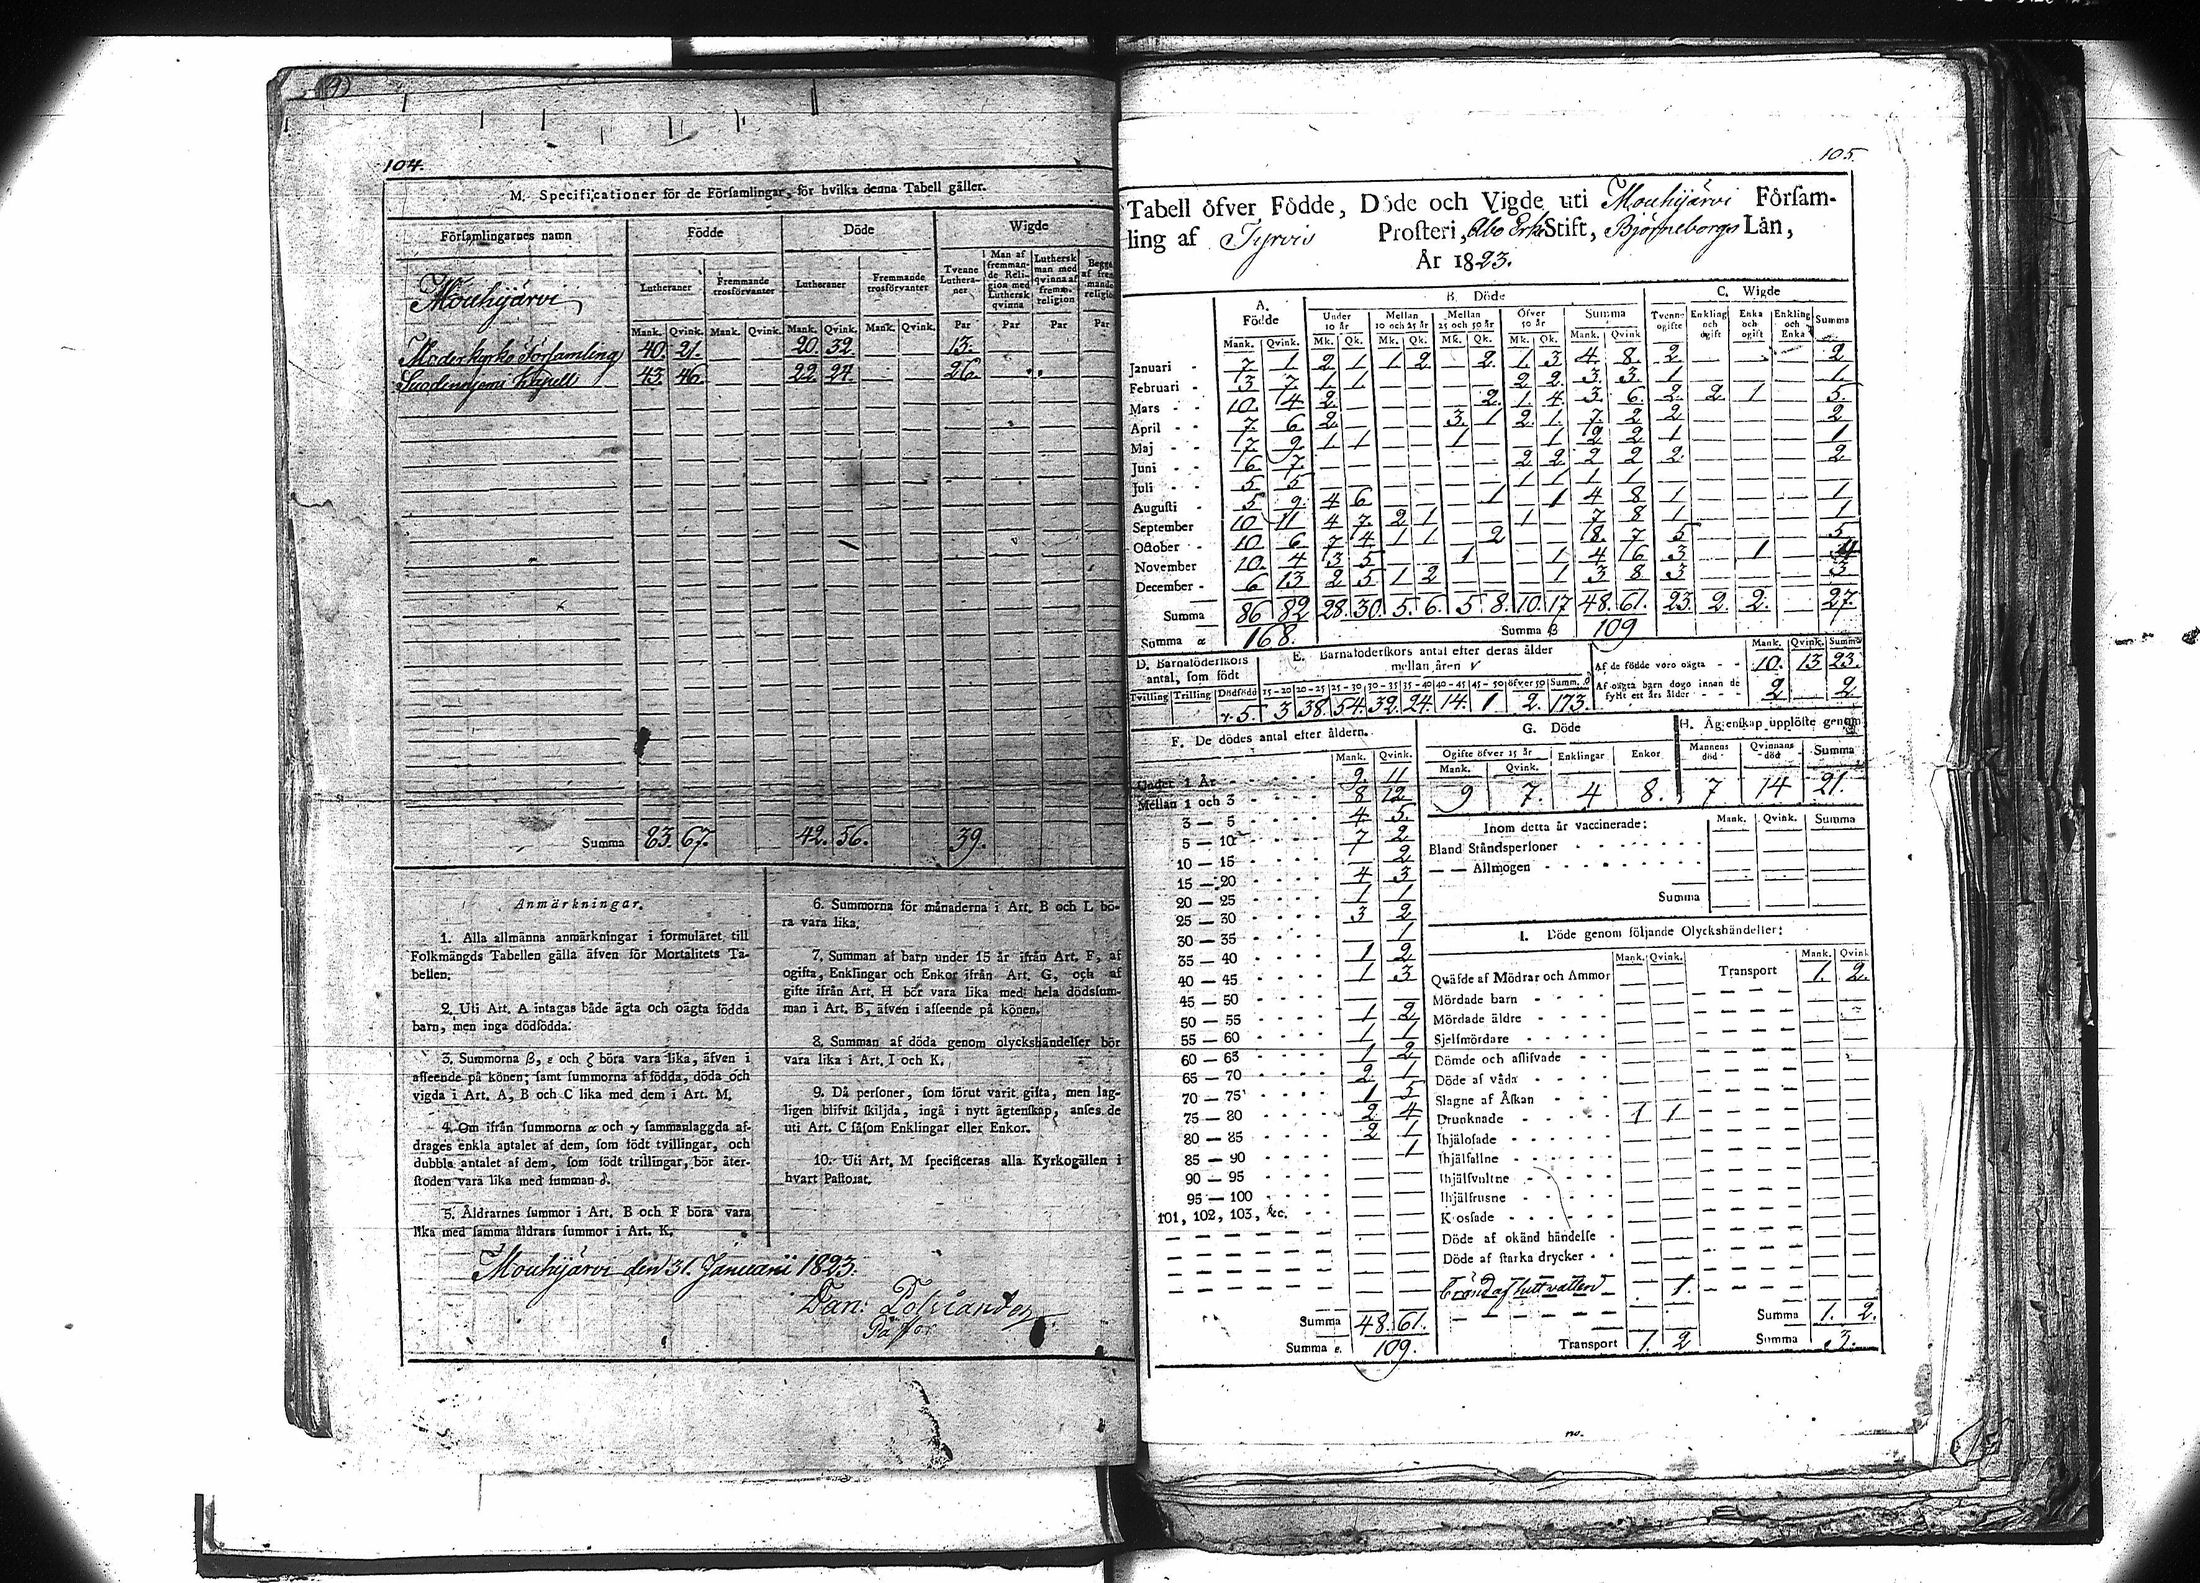 104.
M. Specificationer för de Församlingar, för hvilka denna Tabell gäller.
Församlingarnes namn Födde Döde Wigde
Lutheraner Fremmande trosförvanter Lutheraner Fremmande trosförvanter Tvenne Lutheraner Man af fremmande Religion med Luthersk qvinna Luthersk man med qvinna af fremm. religion Begge af fremmande religion
Mouhijärvi
Mank. Qvink. Mank. Qvink. Mank. Qvink. Mank. Qvink. Par Par Par Par
Moderkyrko Församling 40. 21. 20. 32. 13.
Suodenniemi Kapell 43. 46. 22. 24. 26.
Summa 83. 67. 42. 56. 39.
Anmärkningar.
1. Alla allmänna anmärkningar i formuläret till
Folkmängds Tabellen gälla äfven för Mortalitets Ta-
bellen.
2. Uti Art. A intagas både ägta och oägta födda
barn, men inga dödfödda.
3. Summorna β, ε och ζ böra vara lika, äfven i
afseende på könen; samt summorna af födda, döda och
vigda i Art. A, B och C lika med dem i Art. M.
4. Om ifrån summorna α och γ sammanlaggda af-
drages enkla antalet af dem, som födt tvillingar, och
dubbla antalet af dem, som födt trillingar, bör åter-
stoden vara lika med summan δ.
5. Åldrarnes summor i Art. B och F böra vara
lika med samma åldrars summor i Art. K.
6. Summorna för månaderna i Art. B och L bö-
ra vara lika.
7. Summan af barn under 15 år ifrån Art. F, af
ogifta, Enklingar och Enkor ifrån Art. G, och af
gifte ifrån Art. H bör vara lika med hela dödssum-
man i Art. B, äfven i afseende på könen.
8. Summan af döda genom olyckshändelser bör
vara lika i Art. I och K.
9. Då personer, som förut varit gifta, men lag-
ligen blifvit skiljda, ingå i nytt ägtenskap, anses de
uti Art. C såsom Enklingar eller Enkor.
10. Uti Art. M specificeras alla Kyrkogällen i
hvart Pastorat.
Mouhijärvi den 31. Januarii 1823.
Dan:
Pastor
105.
Tabell öfver Födde, Döde och Vigde uti Mouhijärvi Försam-
ling af Tyrvis Prosteri, Åbo Erke Stift, Björneborgs Län,
År 1823.
A. Födde B. Döde C. Wigde
Under 10 år Mellan 10 och 25 år Mellan 25 och 50 år Öfver 50 år Summa Tvenne ogifte Enkling och ogift Enka och ogift Enkling och Enka Summa
Mank. Qvink. Mk. Qk. Mk. Qk. Mk. Qk. Mk. Qk. Mank. Qvink.
Januari 7. 1. 2. 1. 1. 2. 2. 1. 3. 4. 8. 2. 2
Februari 3 7. 1 1 2 2. 3. 3. 1. 1.
Mars 10. 4 2. 2. 1. 4. 3. 6. 2. 2. 1 5.
April 7. 6 2. 3. 1 2. 1. 7. 2 2 2
Maj 7. 9. 1 1 1 1 2 2 1 1
Juni 6. 7. 2 2. 2 2 2. 2
Juli 5. 5 1 1 1 1
Augusti 5 9. 4 6 1 1 4 8 1 1
September 10. 11 4 7. 2 1 1 7 8 1 1
October 10. 6 7 4 1 1 2 8. 7 5 5
November 10. 4 3 5 1 1 4 6 3 1 4
December 6 13 2 5 1 2 1 3 8 3 3
Summa 86 82 28. 30. 5. 6. 5 8. 10. 17 48. 61. 23. 2. 2. 27.
Summa α 168. Summa β 109
D. Barnaföderskors antal, som födt
Tvilling Trilling Dödfödd
γ. 5.
E. Barnaföderskors antal efter deras ålder mellan åren
15-20 20-25 25-30 30-35 35-40 40-45 45-50 öfver 50 Summ. δ
3 38. 54. 32. 24. 14. 1 2. 173.
Mank. Qvink. Summa
Af de födde voro oägta 10. 13 23.
Af oägta barn dogo innan de fyllt ett års ålder 2 2
F. De dödes antal efter åldern.
Mank. Qvink.
Under 1 År 9. 11
Mellan 1 och 3 8 12
3 — 5 4 5.
5 — 10 7 2
10 — 15 2
15 — 20 4 3
20 — 25 1 1
25 — 30 3 2
30 — 35 1
35 — 40 1 2
40 — 45 1 3
45 — 50
50 — 55 1 2
55 — 60 1 1
60 — 65 1 2
65 — 70 2 1
70 — 75 1 5
75 — 80 2 4
80 — 85 2 1
85 — 90 1
90 — 95
95 — 100
101, 102, 103, &c.
Summa 48. 61.
Summa ε. 109.
G. Döde
Ogifte öfver 15 år Enklingar Enkor
Mank. Qvink.
9 7. 4 8.
H. Ägtenskap upplöste genom
Mannens död Qvinnans död Summa
7 14 21.
Inom detta år vaccinerade: Mank. Qvink. Summa
Bland Ståndspersoner
— — Allmogen
Summa
I. Döde genom följande Olyckshändelser:
Mank. Qvink. Mank. Qvink
Qväfde af Mödrar och Ammor Transport 1. 2.
Mördade barn
Mördade äldre
Sjelfmördare
Dömde och aflifvade
Döde af våda
Slagne af Åskan
Drunknade 1 1
Ihjälosade
Ihjälfallne
Ihjälsvultne
Ihjälfrusne
Krossade
Döde af okänd händelse
Döde af starka drycker
1.
Summa 1. 2.
Transport 1. 2 Summa 3.